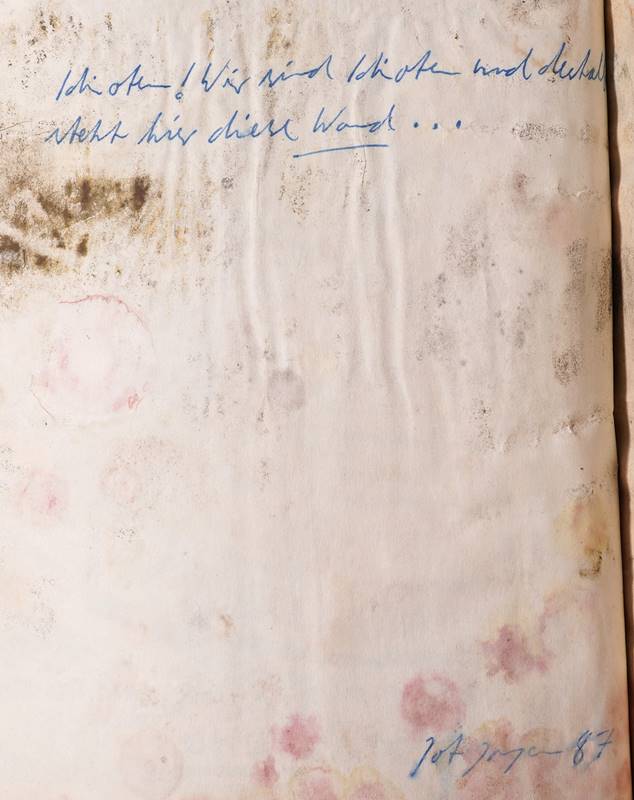 Idioten! Wir sind Idioten und deshalb
steht hier diese Wand...
87